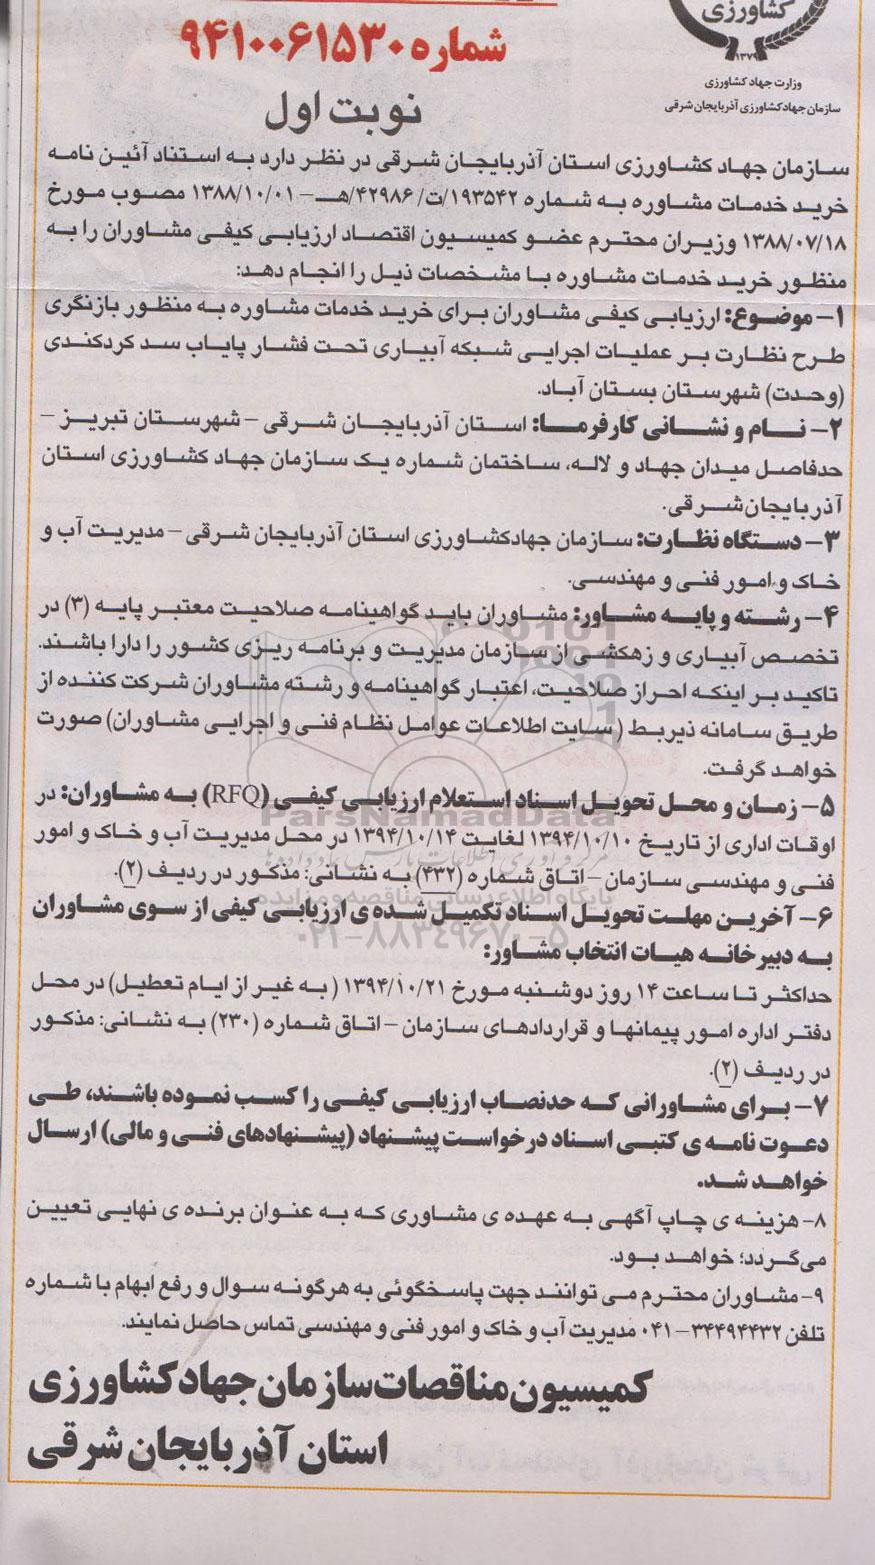 کشاورزی
۱۳۷۹
وزارت جهاد کشاورزی
سازمان جهاد کشاورزی آذربایجان شرقی
شماره ۹۴۱۰۰۶۱۵۳۰
نوبت اول
سازمان جهاد کشاورزی استان آذربایجان شرقی در نظر دارد به استناد آئین نامه
خرید خدمات مشاوره به شماره ۱۹۳۵۴۲/ت/۴۲۹۸۶/هـ - ۱۳۸۸/۱۰/۰۱ مصوب مورخ
۱۳۸۸/۰۷/۱۸ وزیران محترم عضو کمیسیون اقتصاد ارزیابی کیفی مشاوران را به
منظور خرید خدمات مشاوره با مشخصات ذیل را انجام دهد:
۱- موضوع: ارزیابی کیفی مشاوران برای خرید خدمات مشاوره به منظور بازنگری
طرح نظارت بر عملیات اجرایی شبکه آبیاری تحت فشار پایاب سد کردکندی
(وحدت) شهرستان بستان آباد.
۲- نام و نشانی کارفرما: استان آذربایجان شرقی - شهرستان تبریز -
حدفاصل میدان جهاد و لاله، ساختمان شماره یک سازمان جهاد کشاورزی استان
آذربایجان شرقی.
۳- دستگاه نظارت: سازمان جهادکشاورزی استان آذربایجان شرقی - مدیریت آب و
خاک و امور فنی و مهندسی.
۴- رشته و پایه مشاور: مشاوران باید گواهینامه صلاحیت معتبر پایه (۳) در
تخصص آبیاری و زهکشی از سازمان مدیریت و برنامه ریزی کشور را دارا باشند.
تاکید بر اینکه احراز صلاحیت، اعتبار گواهینامه و رشته مشاوران شرکت کننده از
طریق سامانه ذیربط (سایت اطلاعات عوامل نظام فنی و اجرایی مشاوران) صورت
خواهد گرفت.
۵- زمان و محل تحویل اسناد استعلام ارزیابی کیفی (RFQ) به مشاوران: در
اوقات اداری از تاریخ ۱۳۹۴/۱۰/۱۰ لغایت ۱۳۹۴/۱۰/۱۴ در محل مدیریت آب و خاک و امور
فنی و مهندسی سازمان - اتاق شماره (۴۳۲) به نشانی: مذکور در ردیف (۲).
۶- آخرین مهلت تحویل اسناد تکمیل شده ی ارزیابی کیفی از سوی مشاوران
به دبیرخانه هیات انتخاب مشاور:
حداکثر تا ساعت ۱۴ روز دوشنبه مورخ ۱۳۹۴/۱۰/۲۱ (به غیر از ایام تعطیل) در محل
دفتر اداره امور پیمانها و قراردادهای سازمان - اتاق شماره (۲۳۰) به نشانی: مذکور
در ردیف (۲).
۷- برای مشاورانی که حدنصاب ارزیابی کیفی را کسب نموده باشند، طی
دعوت نامه ی کتبی اسناد درخواست پیشنهاد (پیشنهادهای فنی و مالی) ارسال
خواهد شد.
۸- هزینه ی چاپ آگهی به عهده ی مشاوری که به عنوان برنده ی نهایی تعیین
می‌گردد؛ خواهد بود.
۹- مشاوران محترم می توانند جهت پاسخگوئی به هرگونه سوال و رفع ابهام با شماره
تلفن ۳۴۴۹۴۴۳۲-۰۴۱ مدیریت آب و خاک و امور فنی و مهندسی تماس حاصل نمایند.
کمیسیون مناقصات سازمان جهاد کشاورزی
استان آذربایجان شرقی
ParsNamadData
پایگاه اطلاع رسانی مناقصه و مزایده
۰۲۱-۸۸۳۴۹۶۷۰-۵